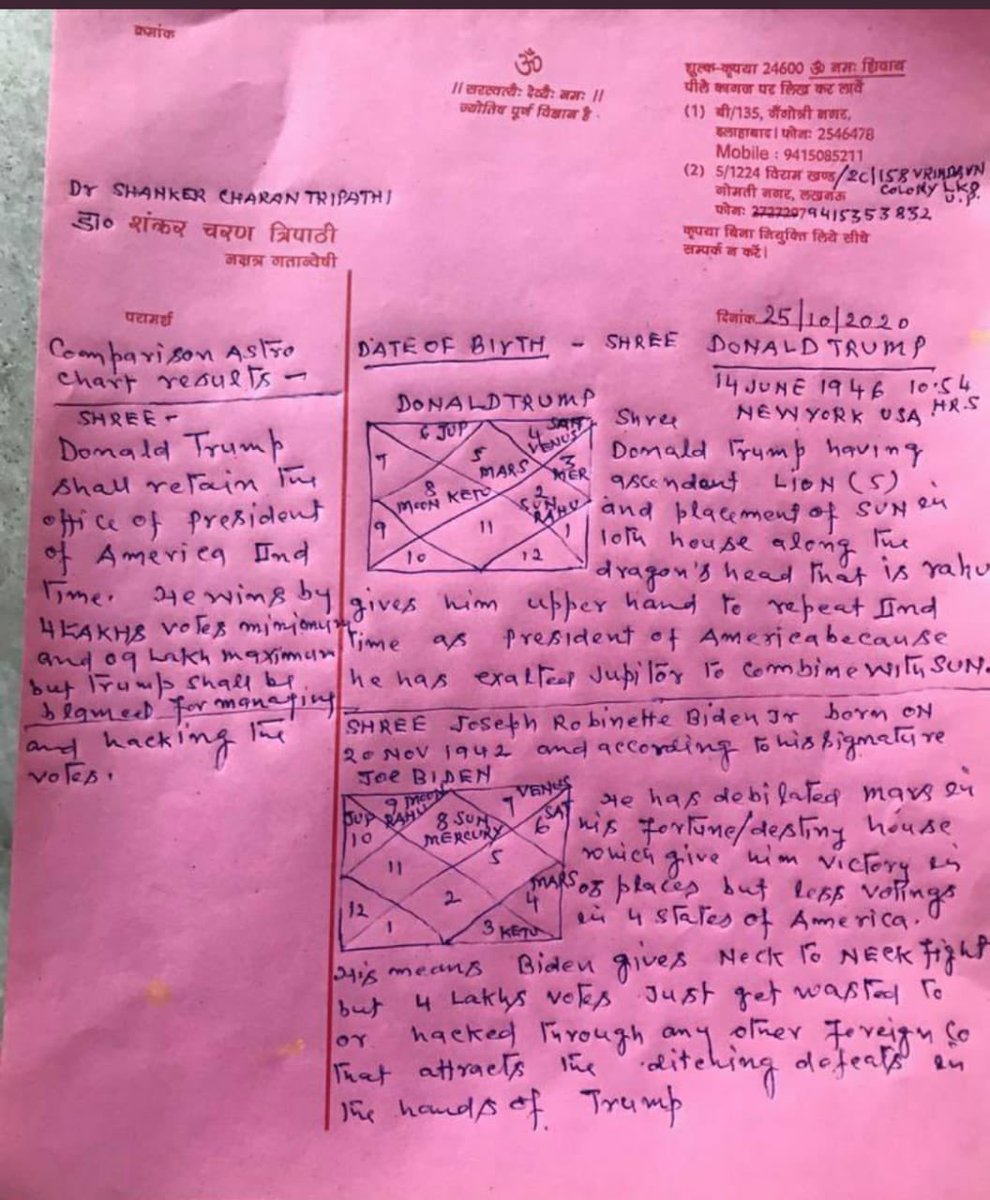 क्रमांक
ॐ
// सरस्वत्यैः देव्यैः नमः //
ज्योतिष पूर्ण विज्ञान है.
शुल्क-कृपया 24600 ॐ नमः शिवाय
पीले कागज पर लिख कर लावें
(1) बी/135, गँगोत्री नगर,
इलाहाबाद। फोनः 2546478
Mobile : 9415085211
(2) 5/1224 विराम खण्ड/2C/158 VRINDAVN
गोमती नगर, लखनऊ COLONY LKO
U.P.
फोनः 2727207 9415353832
कृपया बिना नियुक्ति लिये सीधे
सम्पर्क न करें।
Dr SHANKER CHARAN TRIPATHI
डा० शंकर चरण त्रिपाठी
नक्षत्र गतान्वेषी
परामर्श
दिनांक 25/10/2020
Comparison Astro
chart results -
SHREE -
Donald Trump
shall retain the
office of President
of America IInd
Time. He wins by
4 LAKHS votes minimum
and 09 Lakh maximum
but Trump shall be
blamed for managing
and hacking the
votes.
DATE OF BIrTH - SHREE DONALD TRUMP
14 JUNE 1946 10.54
NEW YORK USA HRS
DONALD TRUMP
6 JUP
4 SAT
VENUS
7
5
MARS
3
MER
8
MOON KETU
2
SUN
RAHU
9
11
1
10
12
Shree
Donald Trump having
ascendent LION (5)
and placement of SUN in
10th house along the
dragon's head that is rahu
gives him upper hand to repeat IInd
time as President of America because
he has exalted Jupitor to combine with SUN.
SHREE Joseph Robinette Biden Jr born ON
20 NOV 1942 and according to his signature
JOE BIDEN
9 MOON
RAHU
7 VENUS
JUP
10
8 SUN
MERCURY
SAT
6
11
5
12
2
MARS
4
1
3 KETU
He has debilated mars in
his fortune/destiny house
which give him victory in
03 places but less votings
in 4 states of America.
His means Biden gives Neck To NECK fight
but 4 Lakhs votes Just get wasted to
or hacked through any other Foreign Co
That attracts the ditching defeats in
the hands of Trump